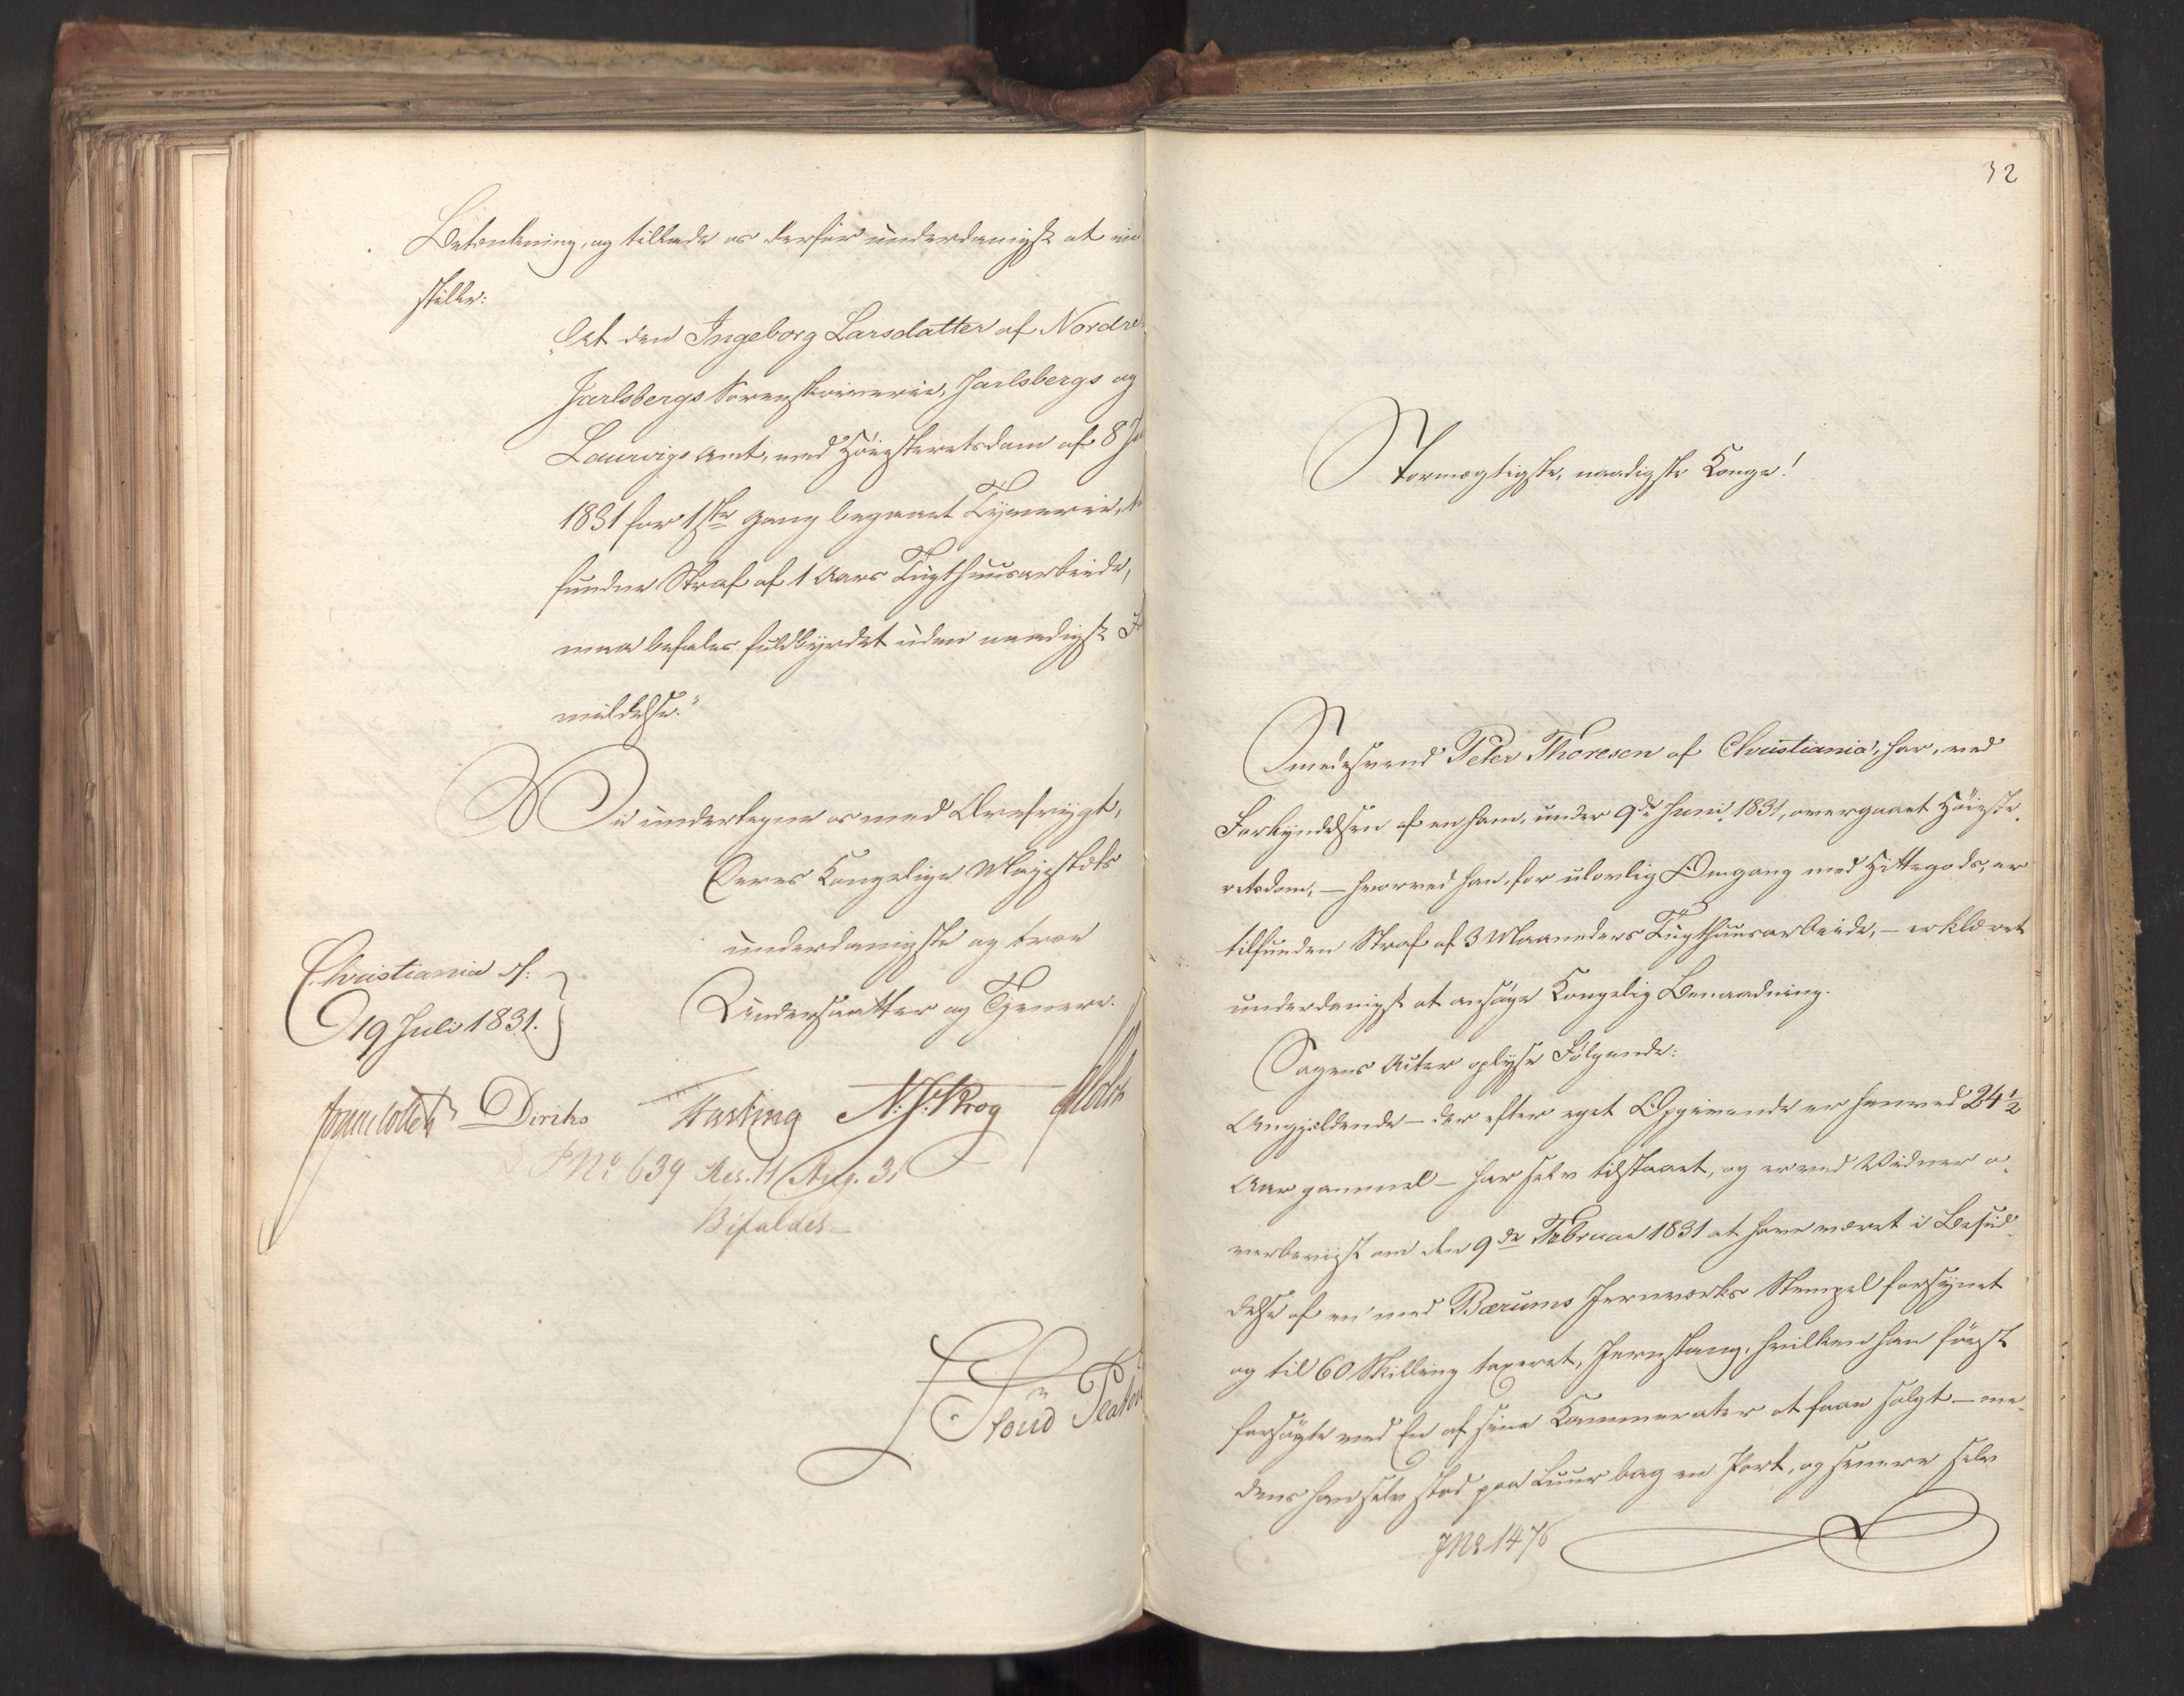 Betænkning, og tillade os derfor underdanigst at ind
stille:
"At den Ingeborg Larsdatter af Nordre
Jarlsbergs Sorenskriverie, Jarlsbergs og
Laurvigs Amt, ved Høiesteretsdom af 8 Ju
1831 for 1ste Gang begaaet Tyverie, til
fundne Straf af 1 Aars Tugthuusarbeide,
maa befales fuldbyrdet uden naadigst For
mildelse."
Vi undertegne os med Ærefrygt,
Deres Kongelige Majestæts
underdanigste og troe
Undersaatter og Tjenere.
Christiania d:
19 Juli 1831.
Jonas Collett Diriks Fasting N. J. Krog Holst
P No 639 Res. 11 Aug. 31
Bifaldes
32
Stormægtigste, naadigste Konge!
Smedesvend Peter Thoresen af Christiania, har, ved
Forkyndelsen af en ham, under 9de Juni 1831, overgaaet Høieste-
retsdom, — hvorved han, for ulovlig Omgang med Hittegods, er
tilfunden Straf af 3 Maaneders Tugthuusarbeide, — erklæret
underdanigst at ansøge Kongelig Benaadning.
Sagens Acter oplyse Følgende:
Angjældende — der efter eget Opgivende er henved 24 1/2
Aar gammel — har selv tilstaaet, og er ved Vidner o-
verbeviist om den 9de Februar 1831 at have været i Besid-
delse af en med Bærums Jernværks Stempel forsynet
og til 60 Skilling taxeret, Jernstang, hvilken han først
forsøgte ved En af sine Kammerater at faae solgt — me-
dens han selv stod paa Luur bag en Port, og senere selv
JNo 1476